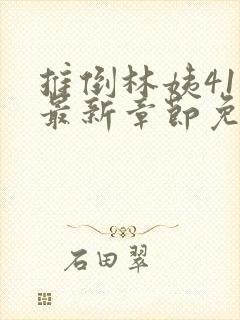 推倒林姨41
最新章节免
石田翠